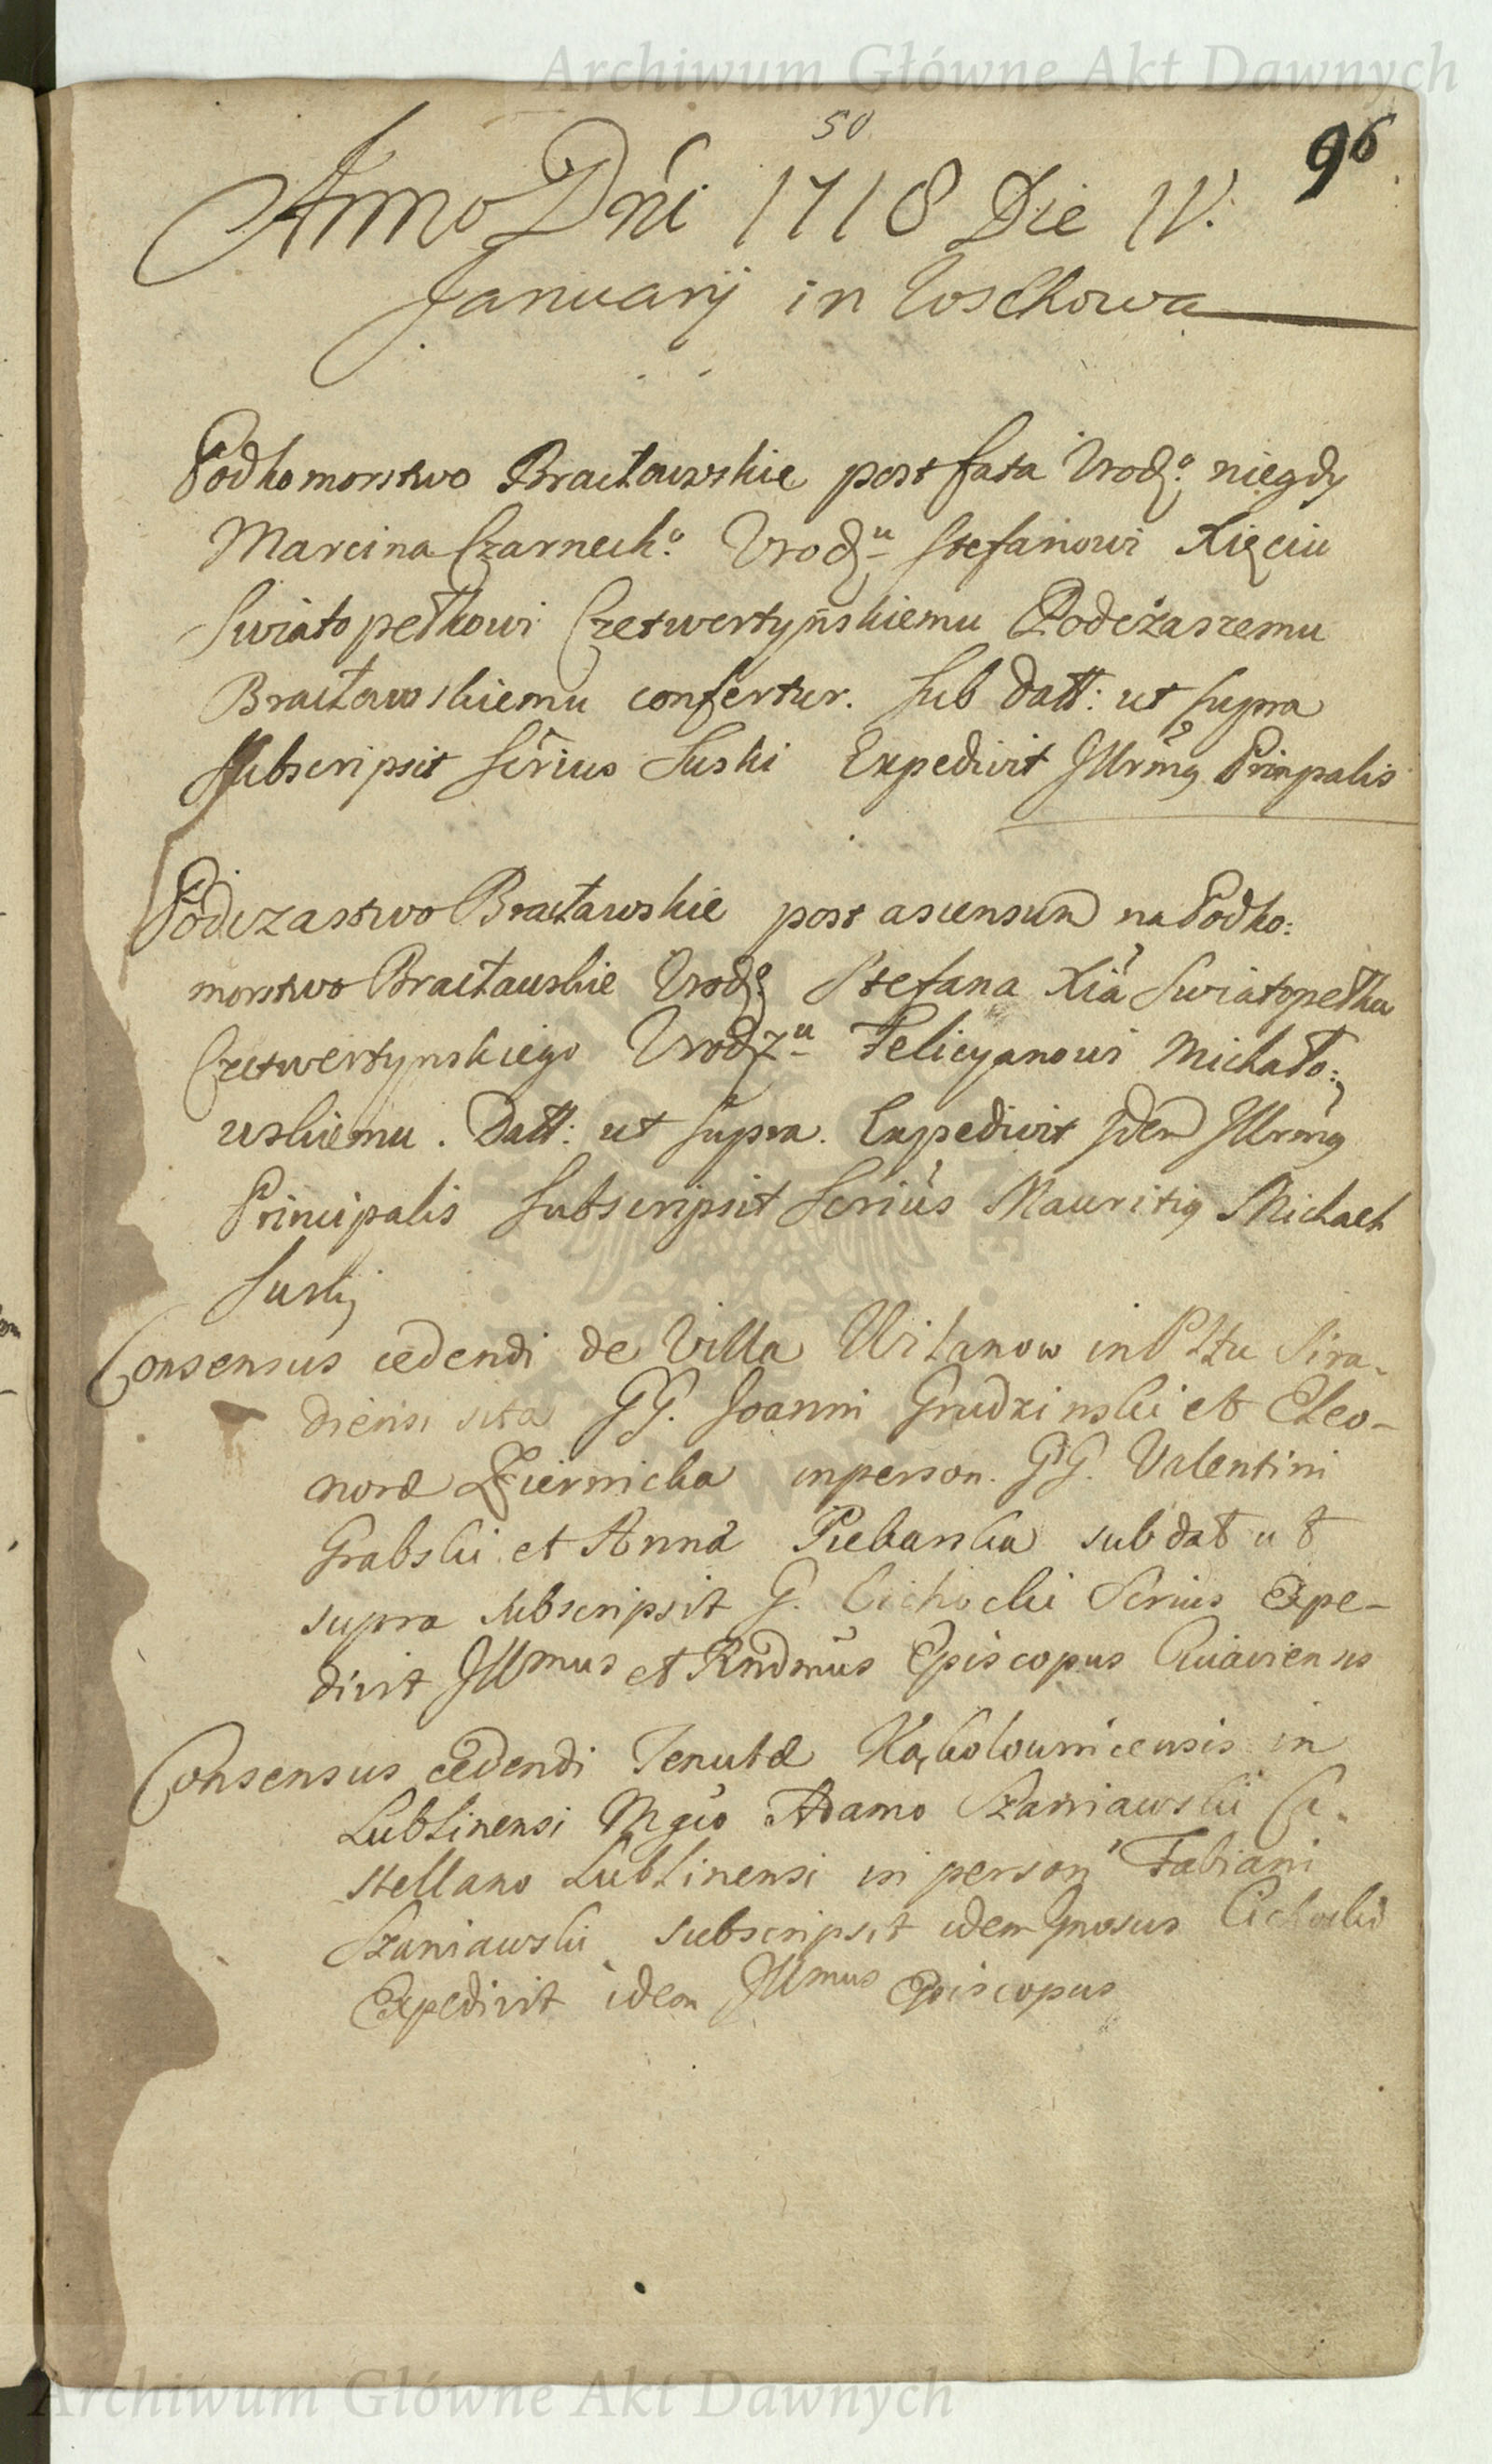 Archiwum Główne Akt Dawnych
50
96
Anno Dni 1718 Die IV.
Januarij in Wschowa
Podkomorstwo Bracławskie post fata Urodz.o niegdy
Marcina Czarneck.o Urodz.u Stefanowi Xięciu
Swiatopełkowi Czetwertyńskiemu Podczaszemu
Bracławskiemu confertur. Sub Datt: ut supra
Subscripsit Scrius Suski Expedivit Illrmg Prinpalis
Podczastwo Bracławskie post ascensum na Podko:
morstwo Bracławskie Urodz.o Stefana Xia Swiatopełka
Czetwertynskiego Urodz.u Felicyanowi Michało:
wskiemu. Datt: ut supra. Expedivit Idem Illrmg
Principalis Subscripsit Scrius Mauritig Michael
Suski
Consensus cedendi de Villa Witanow in Pttu Sira-
diensi sita GG. Joanni Grudzinski et Eleo-
noræ Biernicka in person. GG. Valentini
Grabski et Anna Piekarska sub dat ut
supra subscripsit G. Cichocki Scrius Expe-
divit Illmus et Rndmus Episcopus Cuiaviensis
Consensus cedendi Tenutæ Kąkolownicensis in
Lublinensi Mgco Adamo Szaniawski Ca-
stellano Lublinensi in person Fabiani
Szaniawski subscripsit idem Gnosus Cichocki
Expedivit idem Illmus Episcopus
Archiwum Główne Akt Dawnych